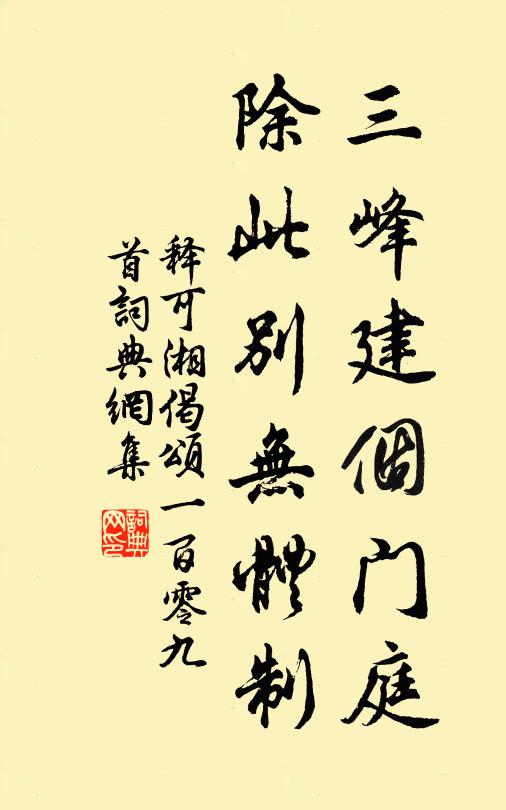 三峰建個门庭
除此別無體制
释可湘偈頌一百零九
首詞典網集
詞典
网印